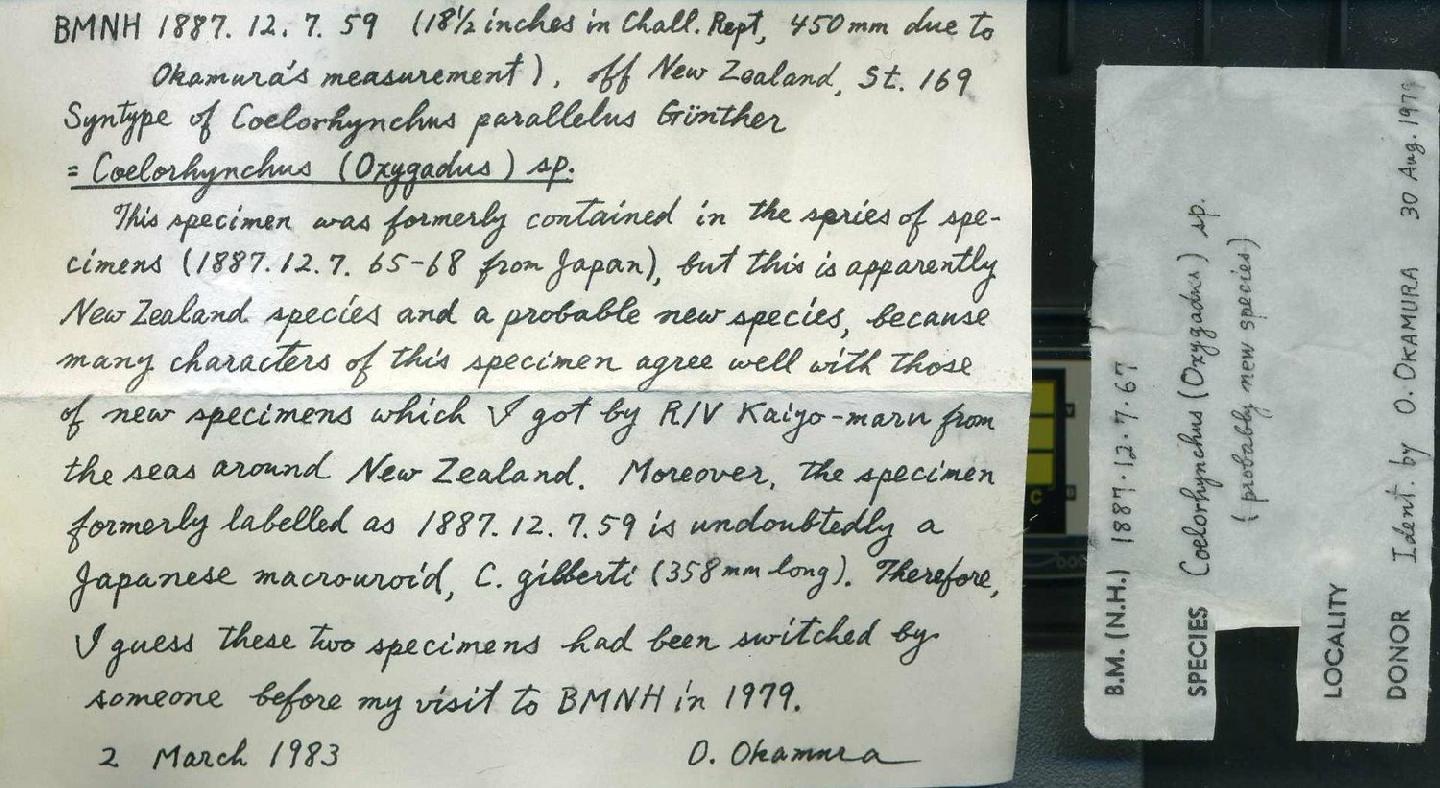 BMNH 1887. 12. 7. 59 (18½ inches in Chall. Rept, 450 mm due to
Okamura's measurement), off New Zealand, St. 169
Syntype of Coelorhynchus parallelus Günther
= Coelorhynchus (Oxygadus) sp.
This specimen was formerly contained in the spries of spe-
cimens (1887. 12. 7. 65-68 from Japan), but this is apparently
New Zealand species and a probable new species, because
many characters of this specimen agree well with those
of new specimens which I got by R/V Kaiyo-maru from
the seas around New Zealand. Moreover, the specimen
formerly labelled as 1887. 12. 7. 59 is undoubtedly a
Japanese macrouroid, C. gilberti (358 mm long). Therefore,
I guess these two specimens had been switched by
someone before my visit to BMNH in 1979.
2 March 1983 O. Okamura
B.M. (N.H.) 1887. 12. 7. 67
SPECIES Coelorhynchus (Oxygadus) sp.
(probably new species)
LOCALITY
DONOR Ident. by O. OKAMURA 30 Aug. 1979